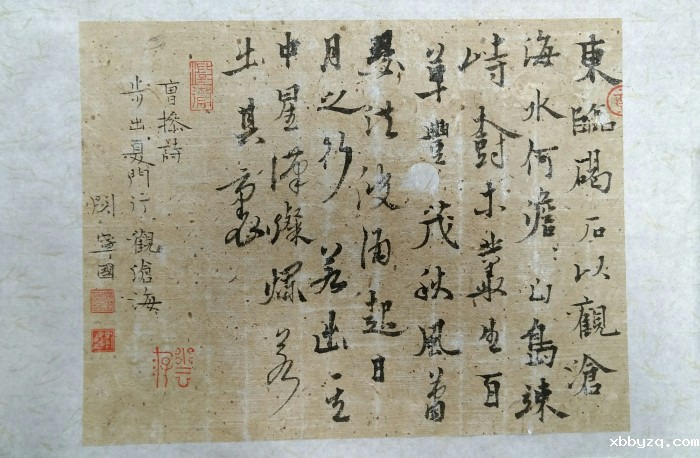 東臨碣石以觀滄
海水何澹:山島竦
峙樹木叢生百
草豐茂秋風蕭
瑟洪波涌起日
月之行若出其
中星漢燦爛若
出其裏
曹操詩
步出夏門行觀滄海
寧國
www.xbbyzq.com